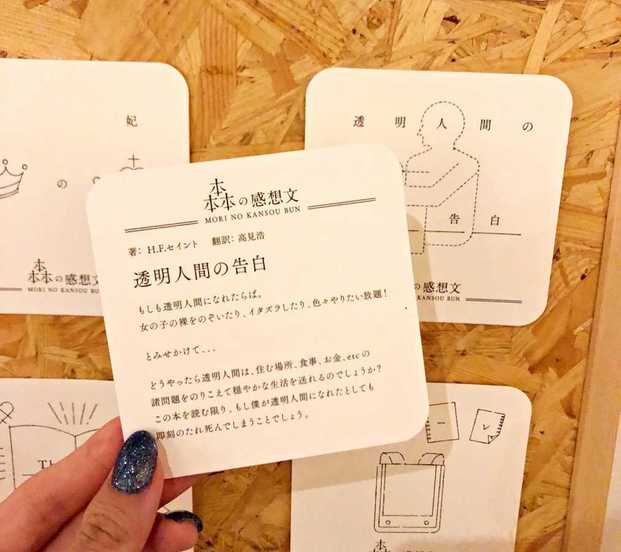 妃
の
森の感想文
MORI NO KANSOU BUN
透明人間の
告白
の感想文
MORI NO KANSOU BUN
森の感想文
MORI NO KANSOU BUN
著: H.F.セイント 翻訳: 高見浩
透明人間の告白
もしも透明人間になれたらば。
女の子の裸をのぞいたり、イタズラしたり、色々やりたい放題!
とみせかけて...
どうやったら透明人間は、住む場所、食事、お金、etcの
諸問題をのりこえて穏やかな生活を送れるのでしょうか?
この本を読む限り、もし僕が透明人間になれたとしても
即刻のたれ死んでしまうことでしょう。
Th